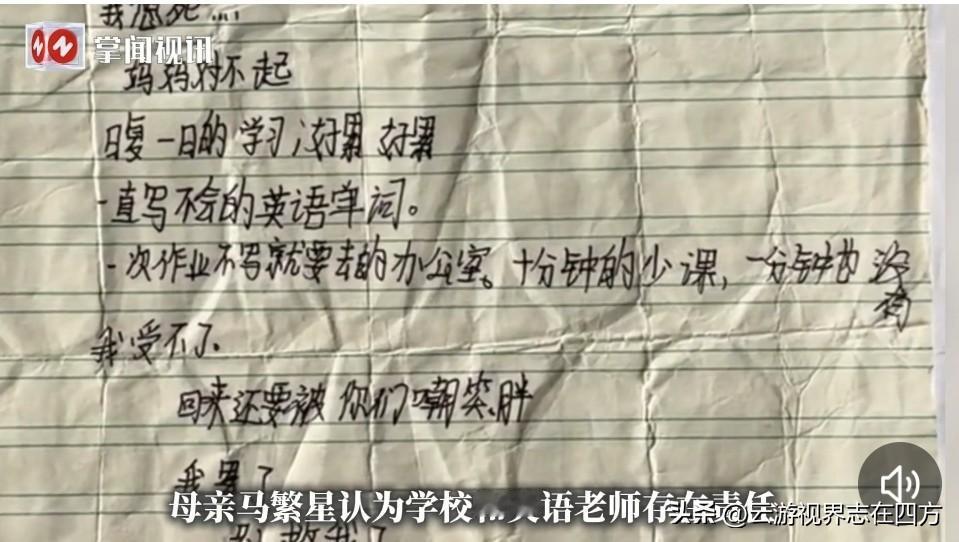 我想死
掌闻视讯
妈妈对不起
日复一日的学习,好累 好累
一直写不会的英语单词。
一次作业不写就要去的办公室。十分钟的少课,一分钟也没
有
我受不了
回来还要被你们嘲笑胖
我累了
母亲马繁星认为学校和英语老师存在责任
头条@云游视界志在四方
别救我了